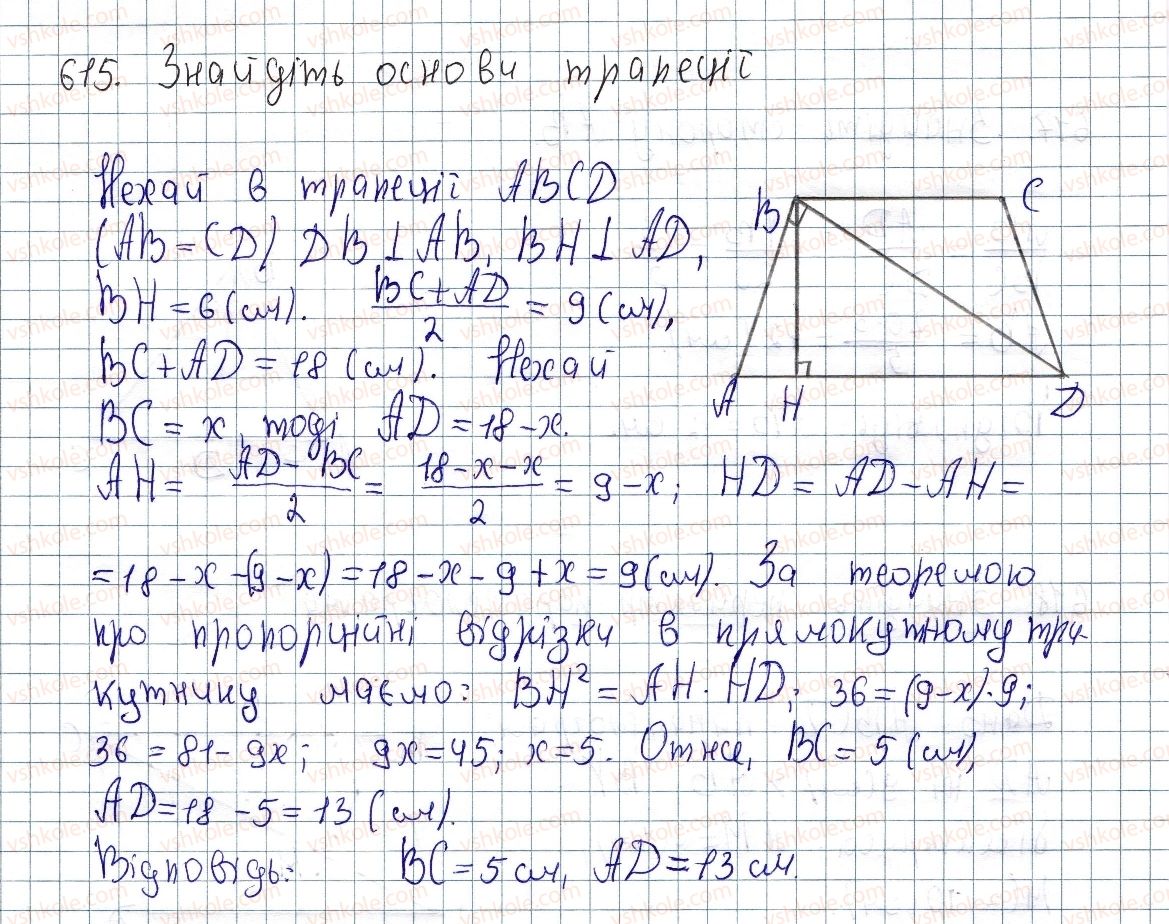 615. Знайдіть основи трапеції
Нехай в трапеції ABCD
(AB = CD) DB ⊥ AB, BH ⊥ AD,
BH = 6 (см). (BC + AD)/2 = 9 (см),
BC + AD = 18 (см). Нехай
BC = x, тоді AD = 18 - x.
AH = (AD - BC)/2 = (18 - x - x)/2 = 9 - x; HD = AD - AH =
= 18 - x - (9 - x) = 18 - x - 9 + x = 9 (см). За теоремою
про пропорційні відрізки в прямокутному три-
кутнику маємо: BH² = AH · HD; 36 = (9 - x) · 9;
36 = 81 - 9x; 9x = 45; x = 5. Отже, BC = 5 (см),
AD = 18 - 5 = 13 (см).
Відповідь: BC = 5 см, AD = 13 см.
B
C
A
H
D
vshkole.com